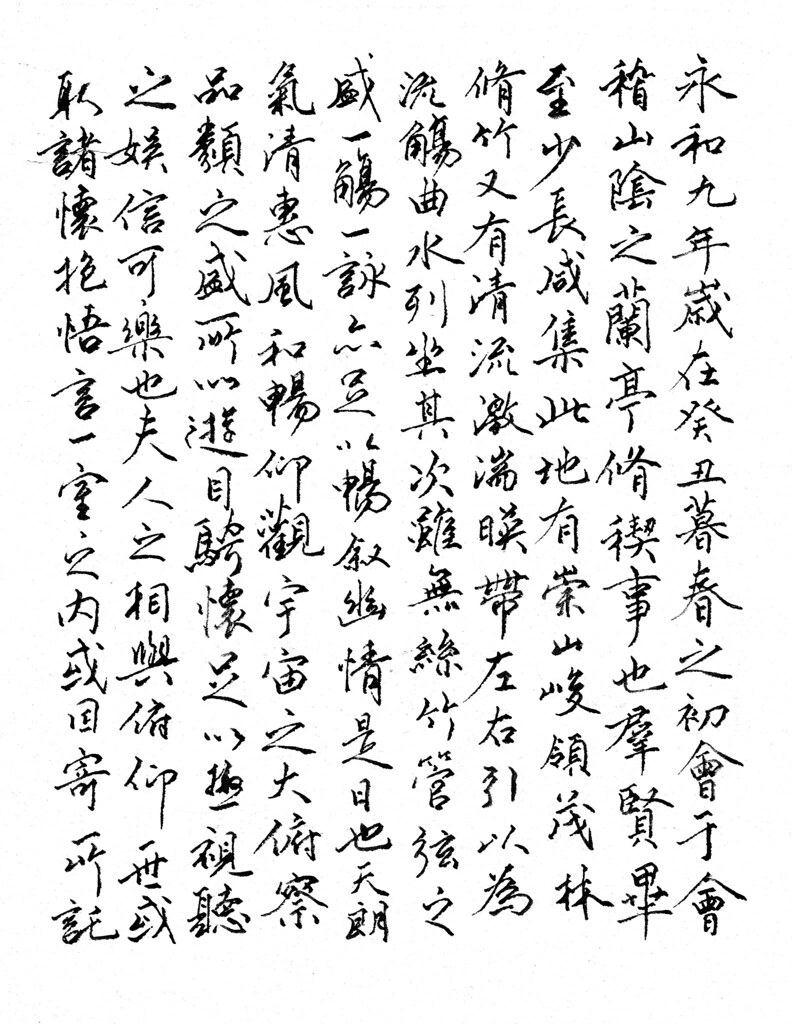 永和九年歲在癸丑暮春之初會于會
稽山陰之蘭亭脩稧事也羣賢畢
至少長咸集此地有崇山峻領茂林
脩竹又有清流激湍暎帶左右引以為
流觴曲水列坐其次雖無絲竹管弦之
盛一觴一詠亦足以暢叙幽情是日也天朗
氣清惠風和暢仰觀宇宙之大俯察
品類之盛所以遊目騁懷足以極視聽
之娛信可樂也夫人之相與俯仰一世或
取諸懷抱悟言一室之內或因寄所託